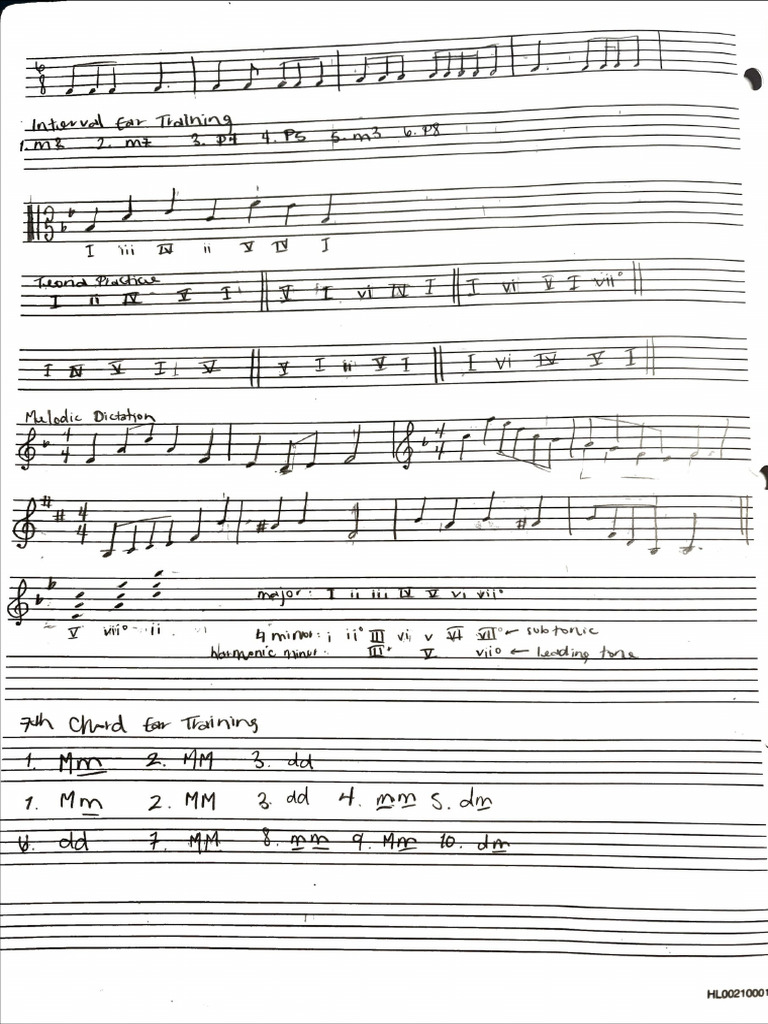 6 8
Interval Ear Training
1. m3 2. m7 3. P4 4. P5 5. m3 6. P8
I iii IV ii V IV I
Practice
I ii IV V I V I vi IV I I vi V I vii°
I IV V I V V I ii V I I vi IV V I
Melodic Dictation
4 4 4 4
4 4
major: I ii iii IV V vi vii°
V vii° ii minor: i ii° III vi v VI VII ← subtonic
harmonic minor: III+ V vii° ← leading tone
7th Chord Ear Training
1. Mm 2. MM 3. dd
1. Mm 2. MM 3. dd 4. mm 5. dm
6. dd 7. MM 8. mm 9. Mm 10. dm
HL00210001